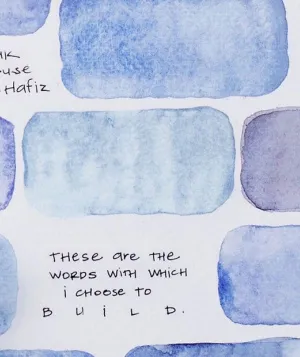 Hafiz
THESE ARE THE
WORDS WITH WHICH
i CHOOSE TO
B U i L D.